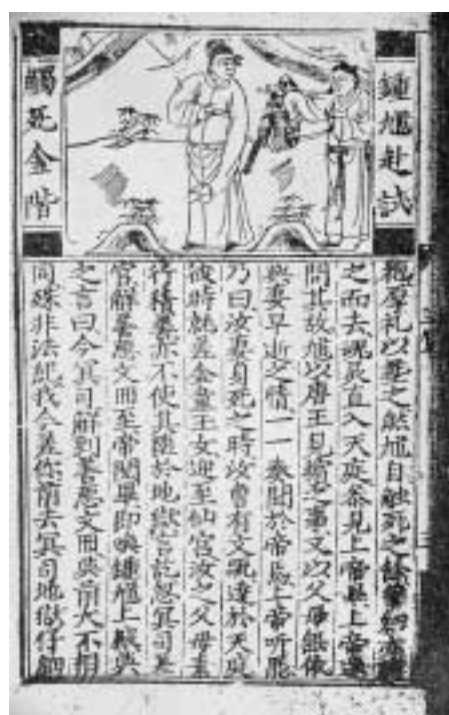 鍾馗赴試
觸死金階
厚礼以葬之然馗自触死之餘
之而去魂灵直入天庭參見上帝畢上帝
問其故馗以唐王見擯之事又以父母飢
與妻早逝之情一一奏聞於帝上帝听罷
乃曰汝妻身死之時汝曾有文疏達於天庭
彼時就差金童玉女迎至仙宮汝之父母素
行積善亦不使其墮於地獄言訖忽冥司差
官解善惡文冊至帝閱畢即喚鍾馗上殿與
之言曰今冥司解到善惡文冊與前大不相
同殊非法紀我今差你前去冥司地獄仔細